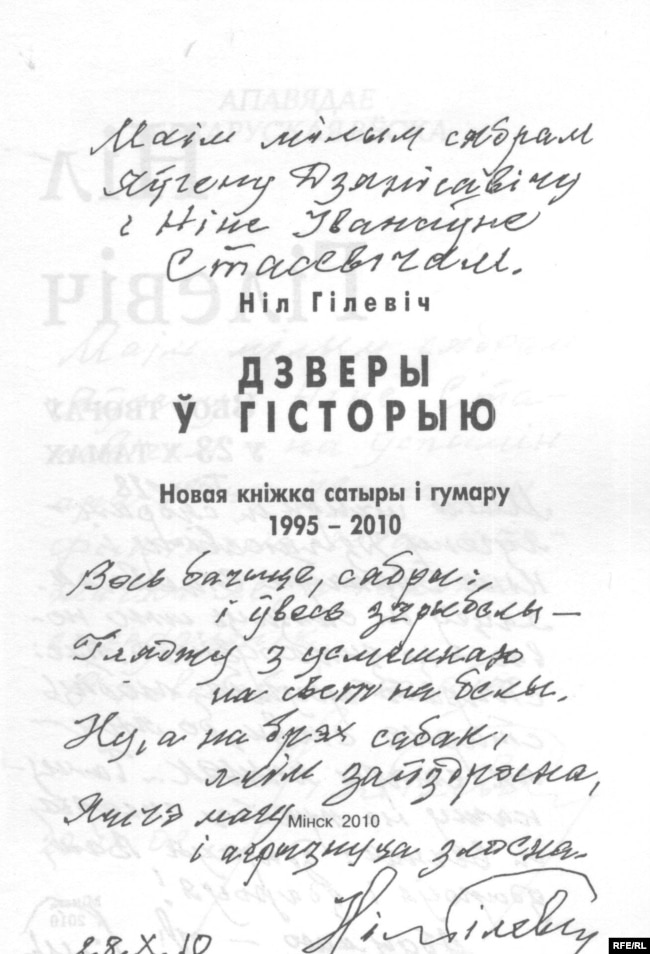 Маім мілым сябрам
Яўгену Дзянісавічу
і Ніне Іванаўне
Стасевічам.
Ніл Гілевіч
ДЗВЕРЫ
Ў ГІСТОРЫЮ
Новая кніжка сатыры і гумару
1995 – 2010
Вось бачыце, сябры:
і ўвесь
Гляджу з усмешкаю
на свет на белы.
Ну, а на брэх сабак,
якім зайздросна,
Яшчэ магу
Мінск 2010
і агрызнуцца злосна.
Ніл Гілевіч
28.X.10
RFE/RL